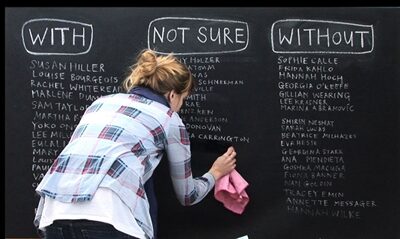 WITH
NOT SURE
WITHOUT
SUSAN HILLER
LOUISE BOURGEOIS
RACHEL WHITEREAD
MARLENE
SAM TAYLOR
MARTHA
YOKO ON
LEE MIL
EULALI
MARY
LOUI
NY HOLZER
SCHNEEMAN
ITH
RAE
ANDERSON
DONOVAN
CARRINGTON
SOPHIE CALLE
FRIDA KAHLO
HANNAH HOCH
GEORGIA O'KEEFE
GILLIAN WEARING
LEE KRASNER
MARINA ABRAMOVIC
SHIRIN NESHAT
SARAH LUCAS
BEATRICE MILHAZES
EVA HESSE
GEORGINA STARR
ANA MENDIETA
GOSHKA MACUGA
FIONA BANNER
NAN GOLDIN
TRACEY EMIN
ANNETTE MESSAGER
HANNAH WILKE